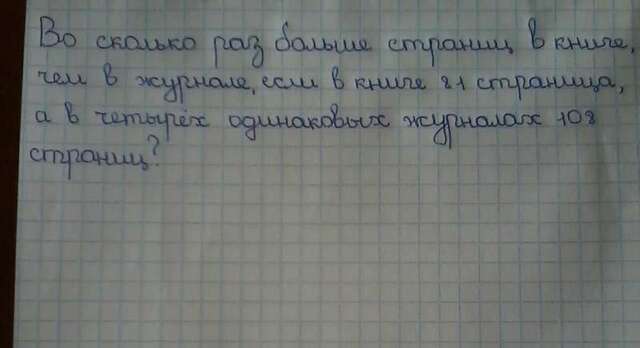 Во сколько раз больше страниц в книге,
чем в журнале, если в книге 81 страница,
а в четырёх одинаковых журналах 108
страниц?